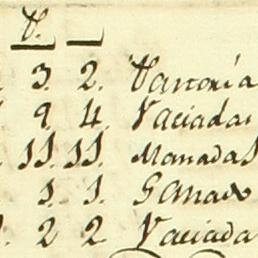 V.
3. 2. Vasconia
9. 4. Vaciadas
11. 11. Monadas
1. 1. Ganado
2. 2. Vaciada